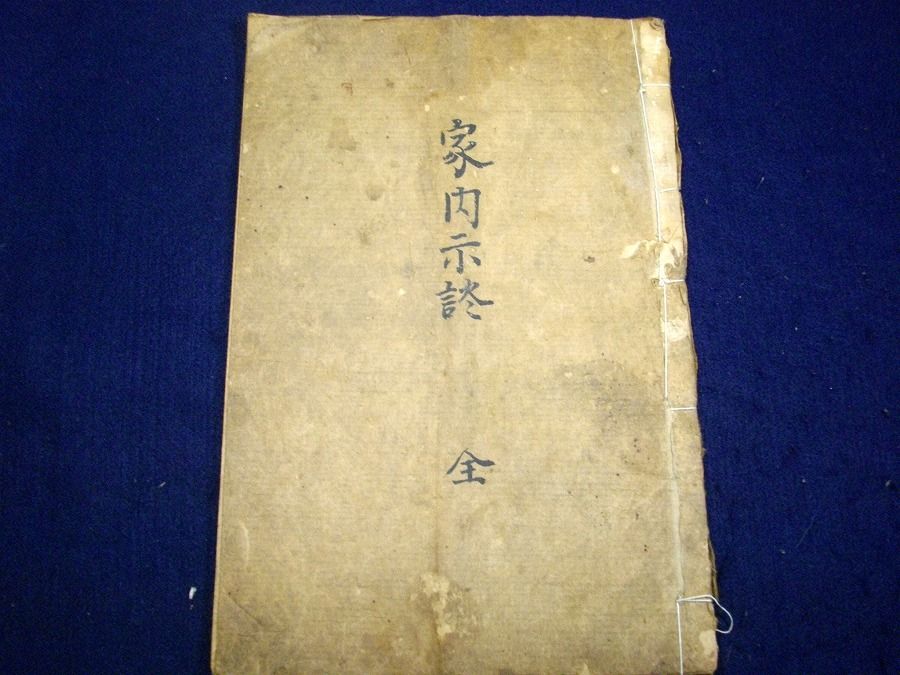 家内示談
全